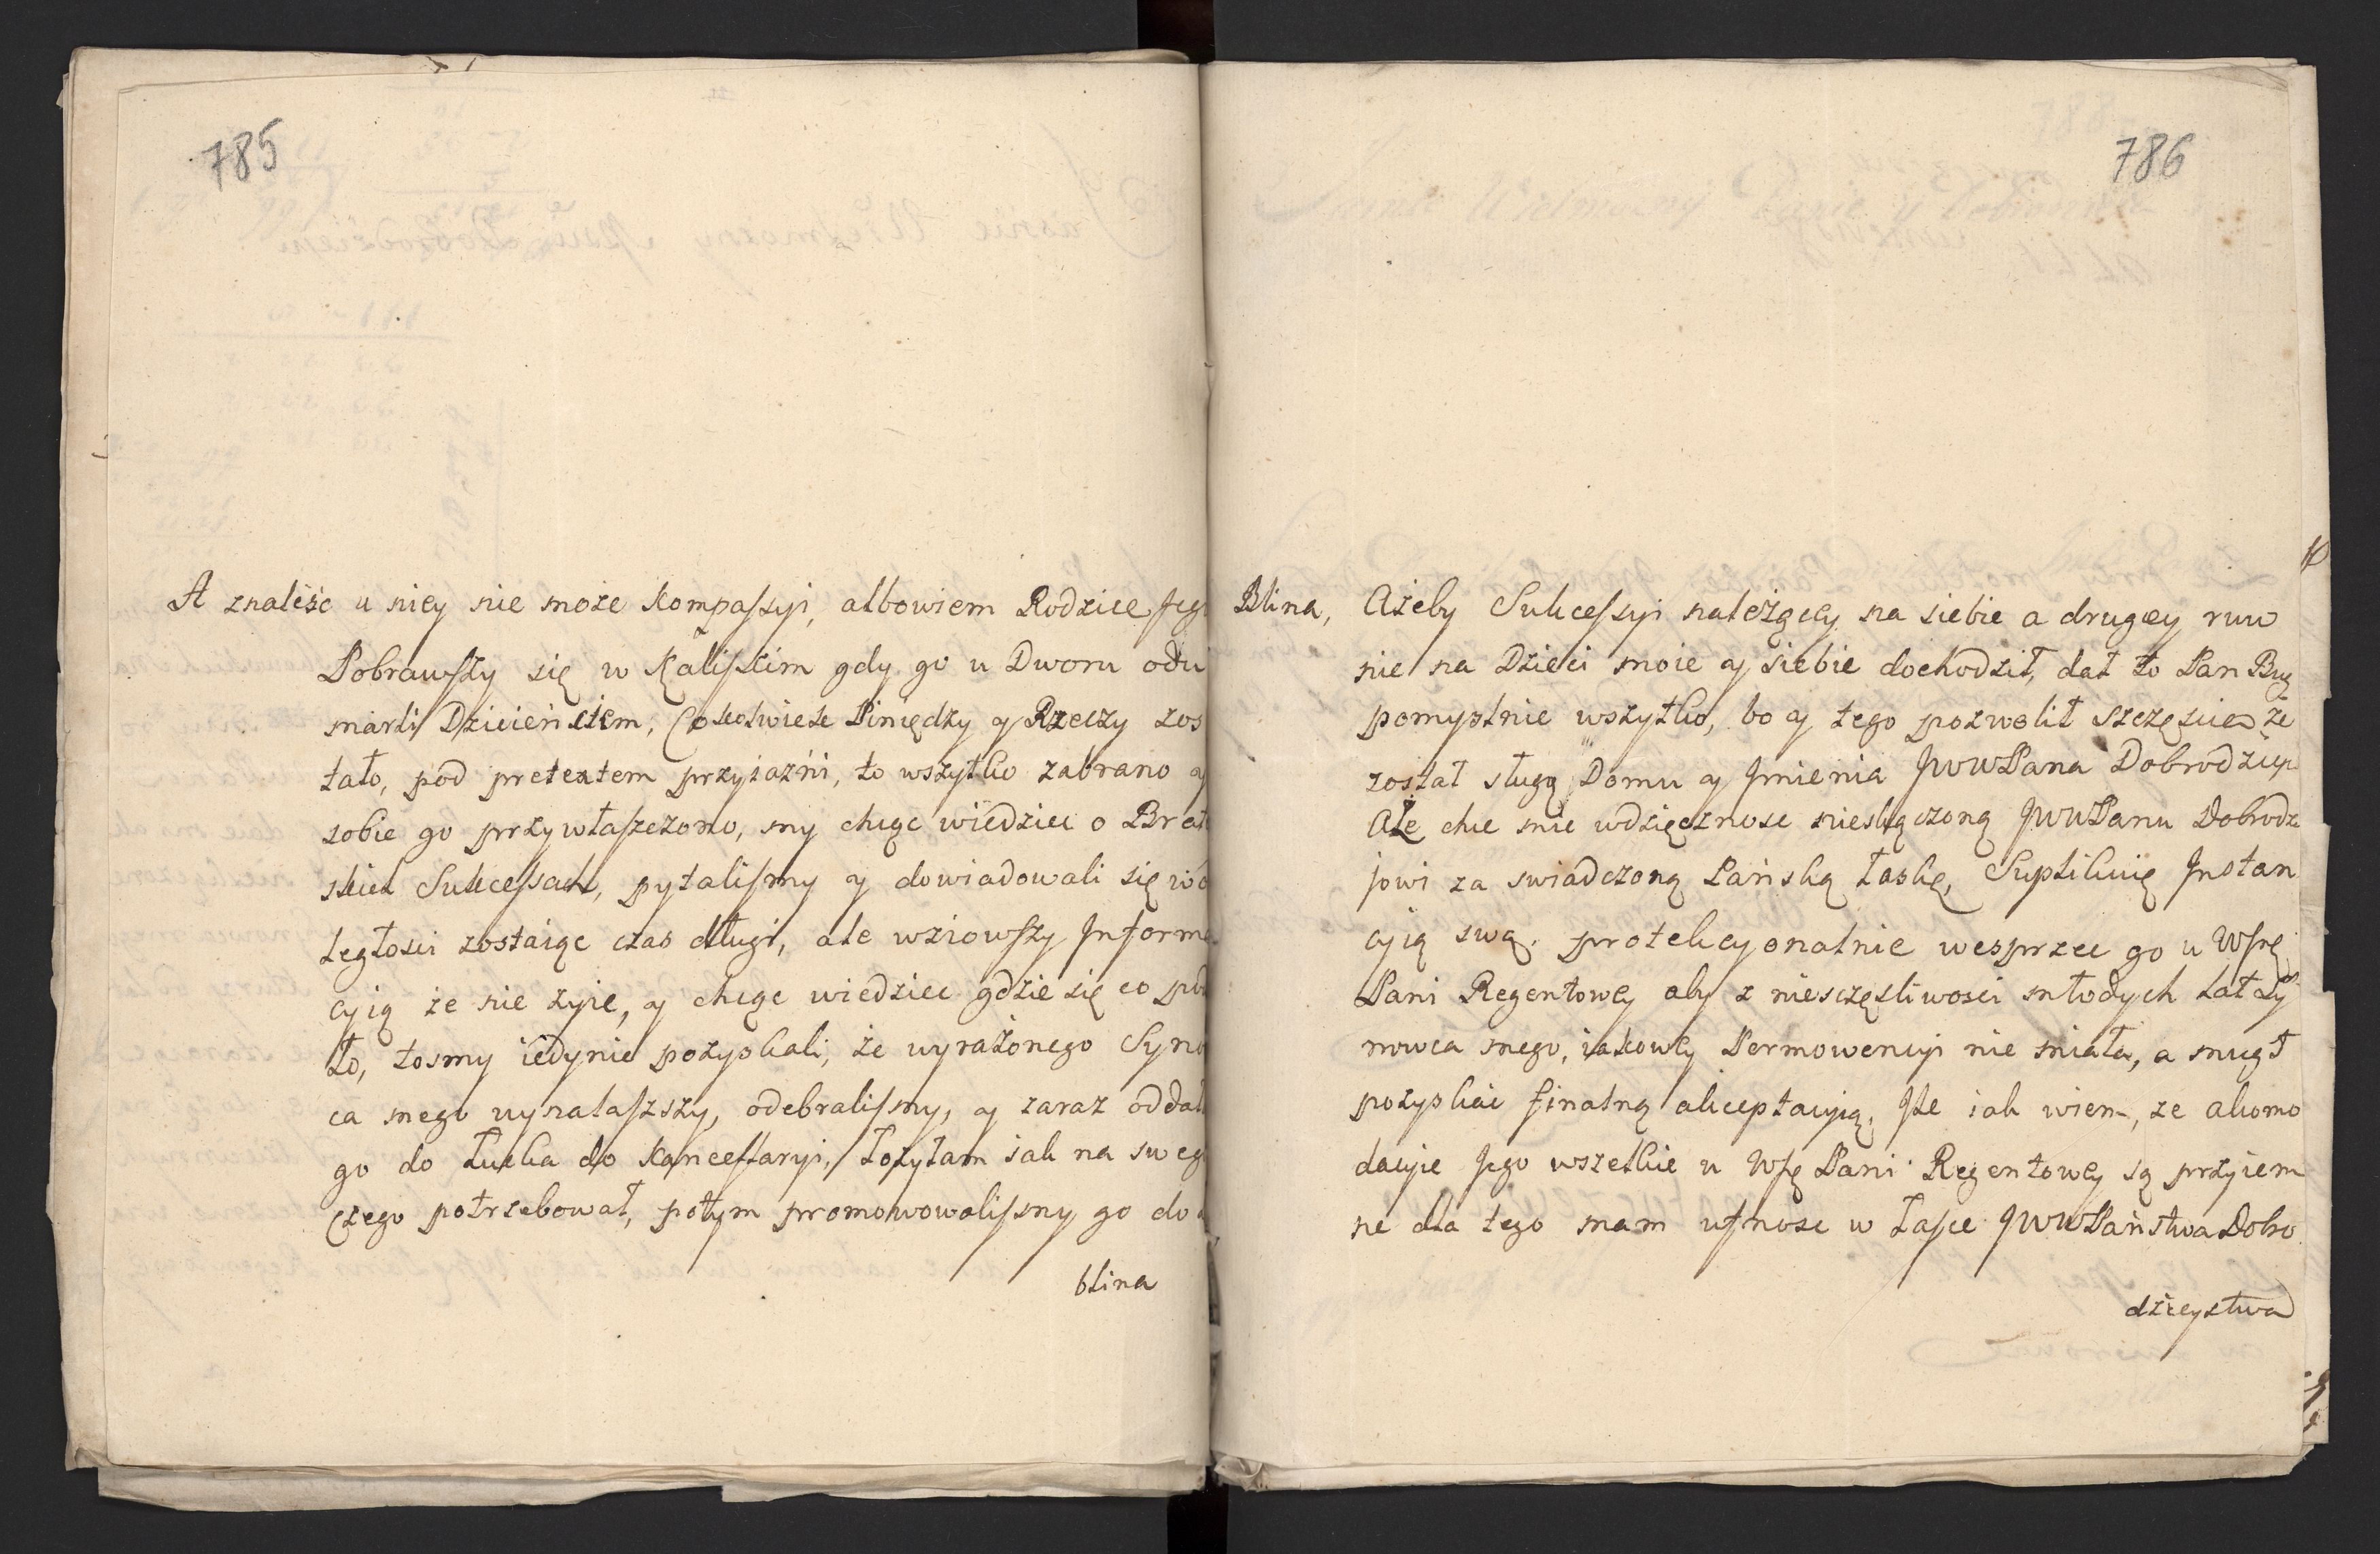 785
A znaleśc u niey nie może Kompaſsyi, albowiem Rodzice Jeg
Pobrawſzy się w Kaliſkim gdy go u Dworu odu
marli Dziecięńciem, Cokolwiek Piniędzy y Rzeczy zos
tało, pod pretextem przyiaźni, to wszytko zabrano y
sobie go przywłaſzczono, my chcąc wiedziec o Brat
skich Sukceſsach, pytaliſmy y dowiadowali się w o
ległosci zostaiąc czas długi, ale wziowſzy Jnforma
cyią że nie żyie, y chcąc wiedziec gdzie się co po
ło, tosmy iedynie pozyskali, że wyrażonego Syno
ca mego wynalaſzszy, odebraliſmy, y zaraz oddał
go do Łucka do Kancellaryi, Łożyłam iak na sweg
czego potrzebował, potym promowowaliſmy go do
blina
786
Blina, Ażeby Sukceſsyi należącey na siebie a drugiey ruw
nie na Dzieci moie y siebie dochodził, dał to Pan Bug
pomyslnie wszytko, bo y tego pozwolił szczęscie że
został sługą Domu y Jmienia JWWPana Dobrodzieja
Ale chce mie wdzięcznosc nieskączoną JWWPanu Dobrodz
jowi za swiadczoną Pańską łaskę, Suplikuię Jnstan
cyią swą. protekcyonalnie wesprzec go u Wſzę
Pani Regentowey aby z niesczęsliwosci młodych lat Sy
nowca mego, iakowey Permowencyi nie miała, a mugł
pozyskac finalną akceptacyią, Jle iak wiem, ze akomo
dacyie Jego wszelkie u Wſzę Pani Regentowey są przyiem
ne dla tego mam ufnosc w łaſce JWWPaństwa Dobro
dzieystwa